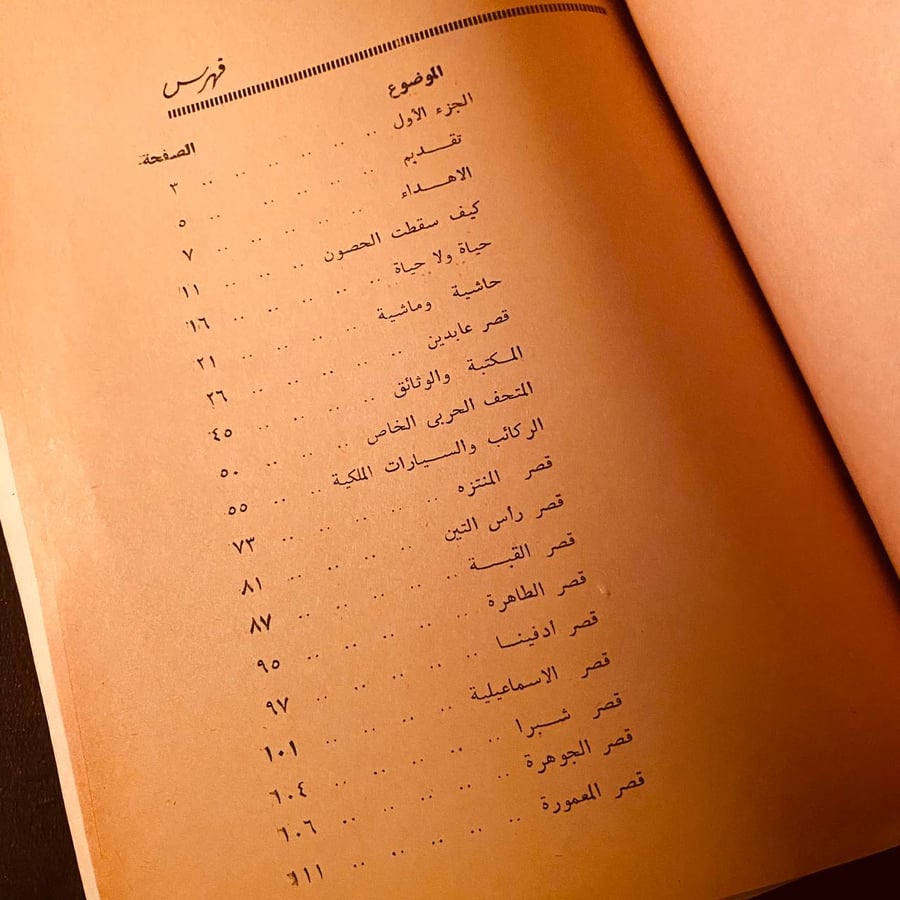 فهرس
الموضوع الصفحة
الجزء الأول .. .. .. .. .. .. ٣
تقـــديم .. .. .. .. .. .. ٥
الاهـــداء .. .. .. .. .. ٧
كيف سقطت الحصون .. .. .. ١١
حياة ولا حياة .. .. .. .. .. ١٦
حاشية وماشية .. .. .. .. ٢١
قصر عابدين .. .. .. .. .. ٢٦
المكتبة والوثائق .. .. .. .. ٤٥
المتحف الحربى الخاص .. .. .. ٥٠
الركائب والسيارات الملكية .. .. ٥٥
قصر المنتزه .. .. .. .. .. ٧٣
قصر رأس التين .. .. .. .. ٨١
قصر القبـــة .. .. .. .. .. ٨٧
قصر الطاهرة .. .. .. .. .. ٩٥
قصر ادفينـا .. .. .. .. .. ٩٧
قصر الاسماعيلية .. .. .. .. ١٠١
قصر شـــبرا .. .. .. .. .. ١٠٤
قصر الجوهرة .. .. .. .. .. ١٠٦
قصر المعمورة .. .. .. .. .. ١١١